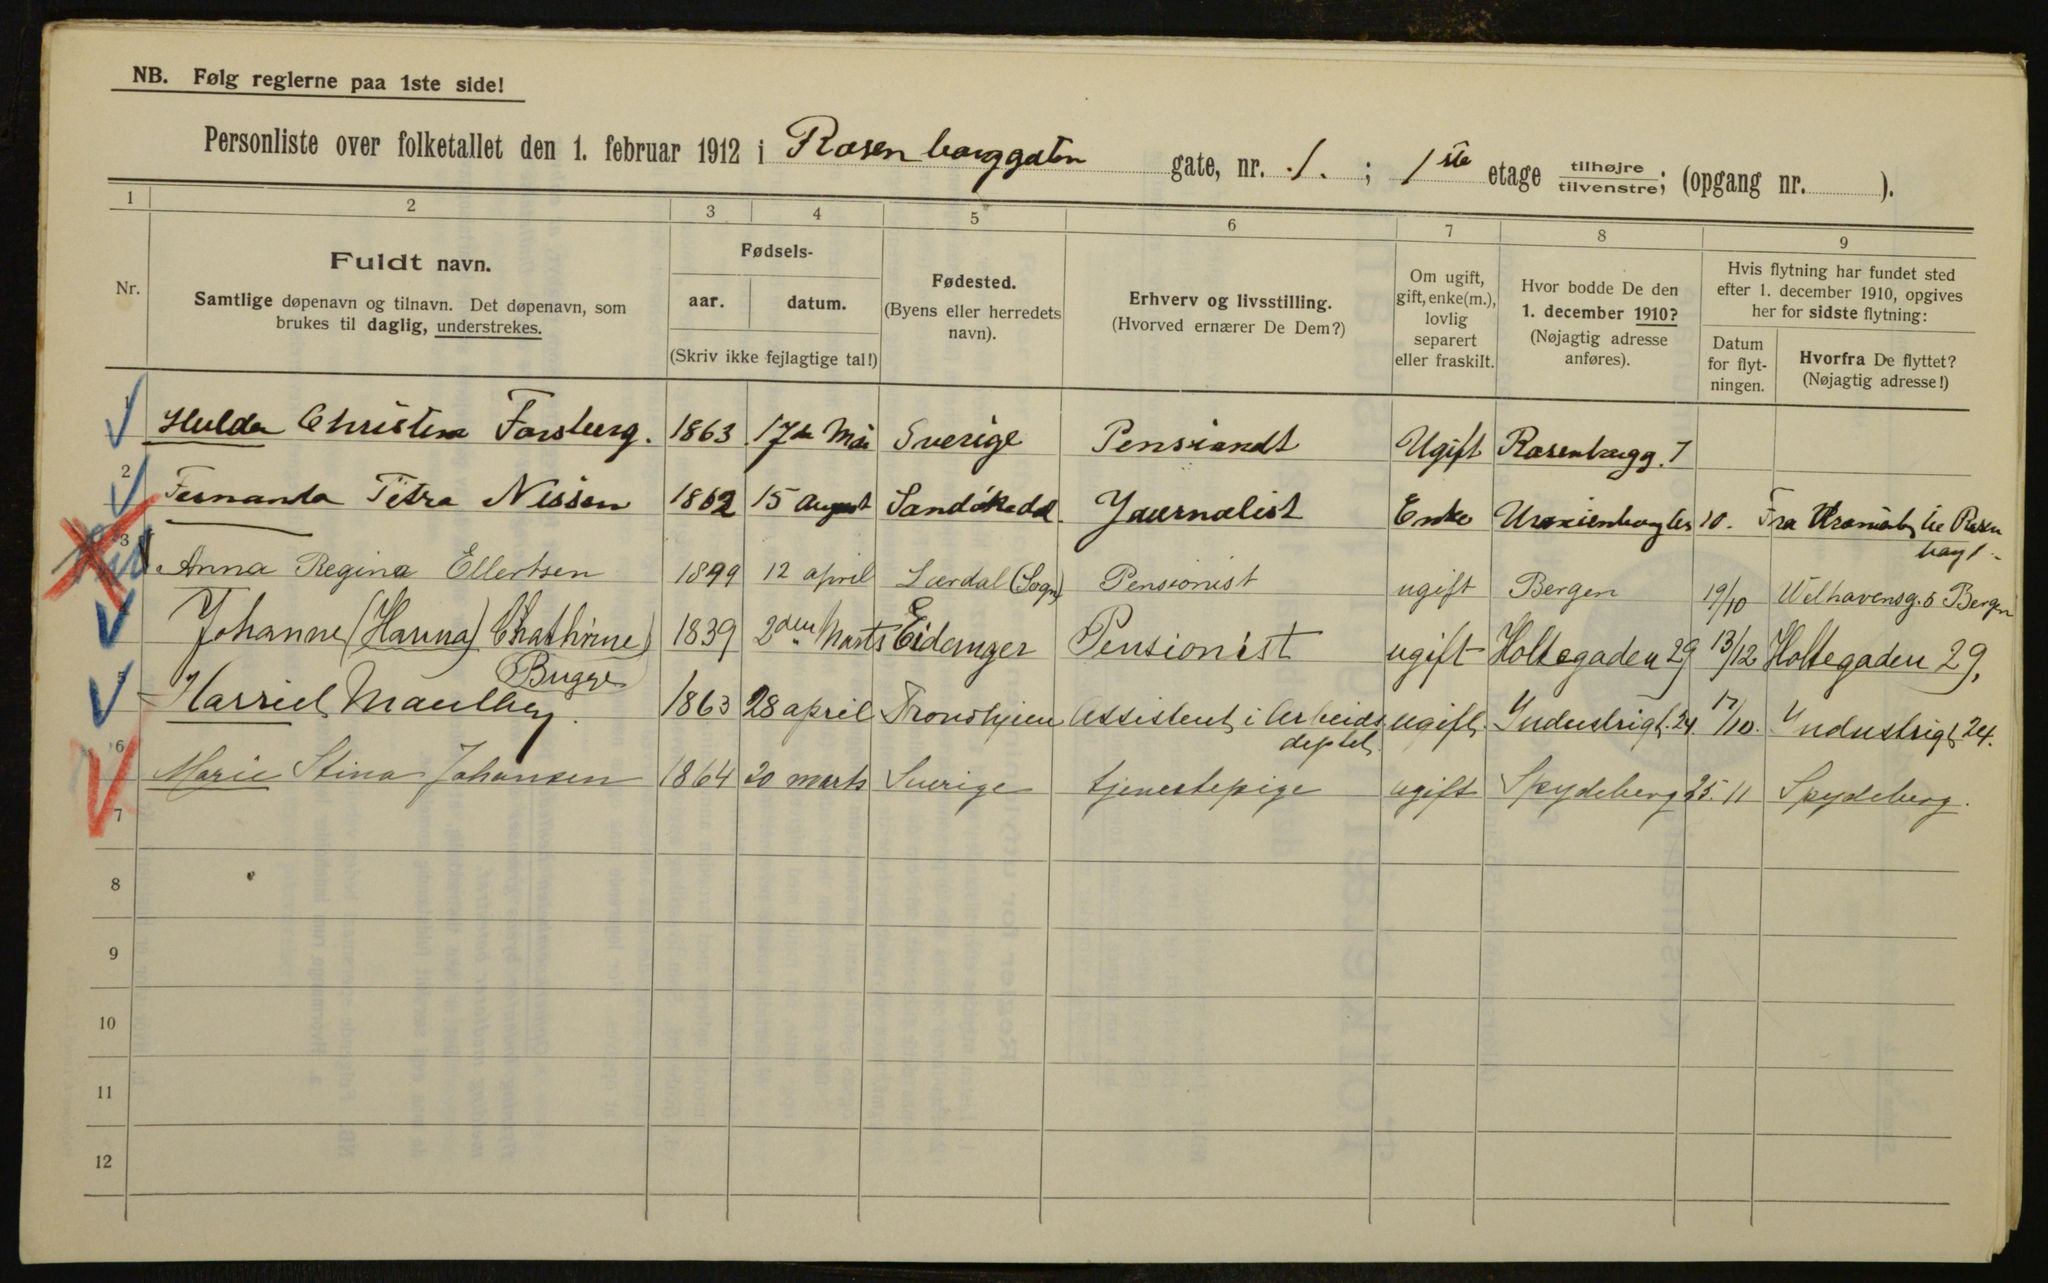 NB. Følg reglerne paa 1ste side!
Personliste over folketallet den 1. februar 1912 i Rosenborggaten gate, nr. 1. ; 1ste etage tilhøjre tilvenstre; (opgang nr. ).
1 2 3 4 5 6 7 8 9
Nr.
Fuldt navn.
Samtlige døpenavn og tilnavn. Det døpenavn, som
brukes til daglig, understrekes.
Fødsels-
aar. datum.
(Skriv ikke fejlagtige tal!)
Fødested.
(Byens eller herredets
navn).
Erhverv og livsstilling.
(Hvorved ernærer De Dem?)
Om ugift,
gift, enke(m.),
lovlig
separert
eller fraskilt.
Hvor bodde De den
1. december 1910?
(Nøjagtig adresse
anføres).
Hvis flytning har fundet sted
efter 1. december 1910, opgives
her for sidste flytning:
Datum
for flyt-
ningen.
Hvorfra De flyttet?
(Nøjagtig adresse!)
1 Hulda Christina Forsberg. 1863 17de Mai Sverige Pensiondt Ugift Rosenborgg. 1
2 Fernanda Petra Nissen 1862 15 august Enke Journalist 10. Fra til Rosen
borg 1.
3 Anna Regina Ellertsen 1899 12 april Lærdal (Sogn) Pensionist ugift Bergen 19/10 Welhavensg. 5 Bergen
Johanne (Hanna) Chathrine 1839 2den Marts Eidanger Pensionist ugift Holtegaden 29 13/12 Holtegaden 29,
Bugge
5 Harriet 1863 28 april Trondhjem Assistent i Arbeids ugift. Industrigt. 24. 17/10. Industrigt 24.
deptet.
6 Marie Stina Johansen 1864 20 marts Sverige tjenestepige ugift Spydeberg 25. 11 Spydeberg.
7
8
9
10
11
12